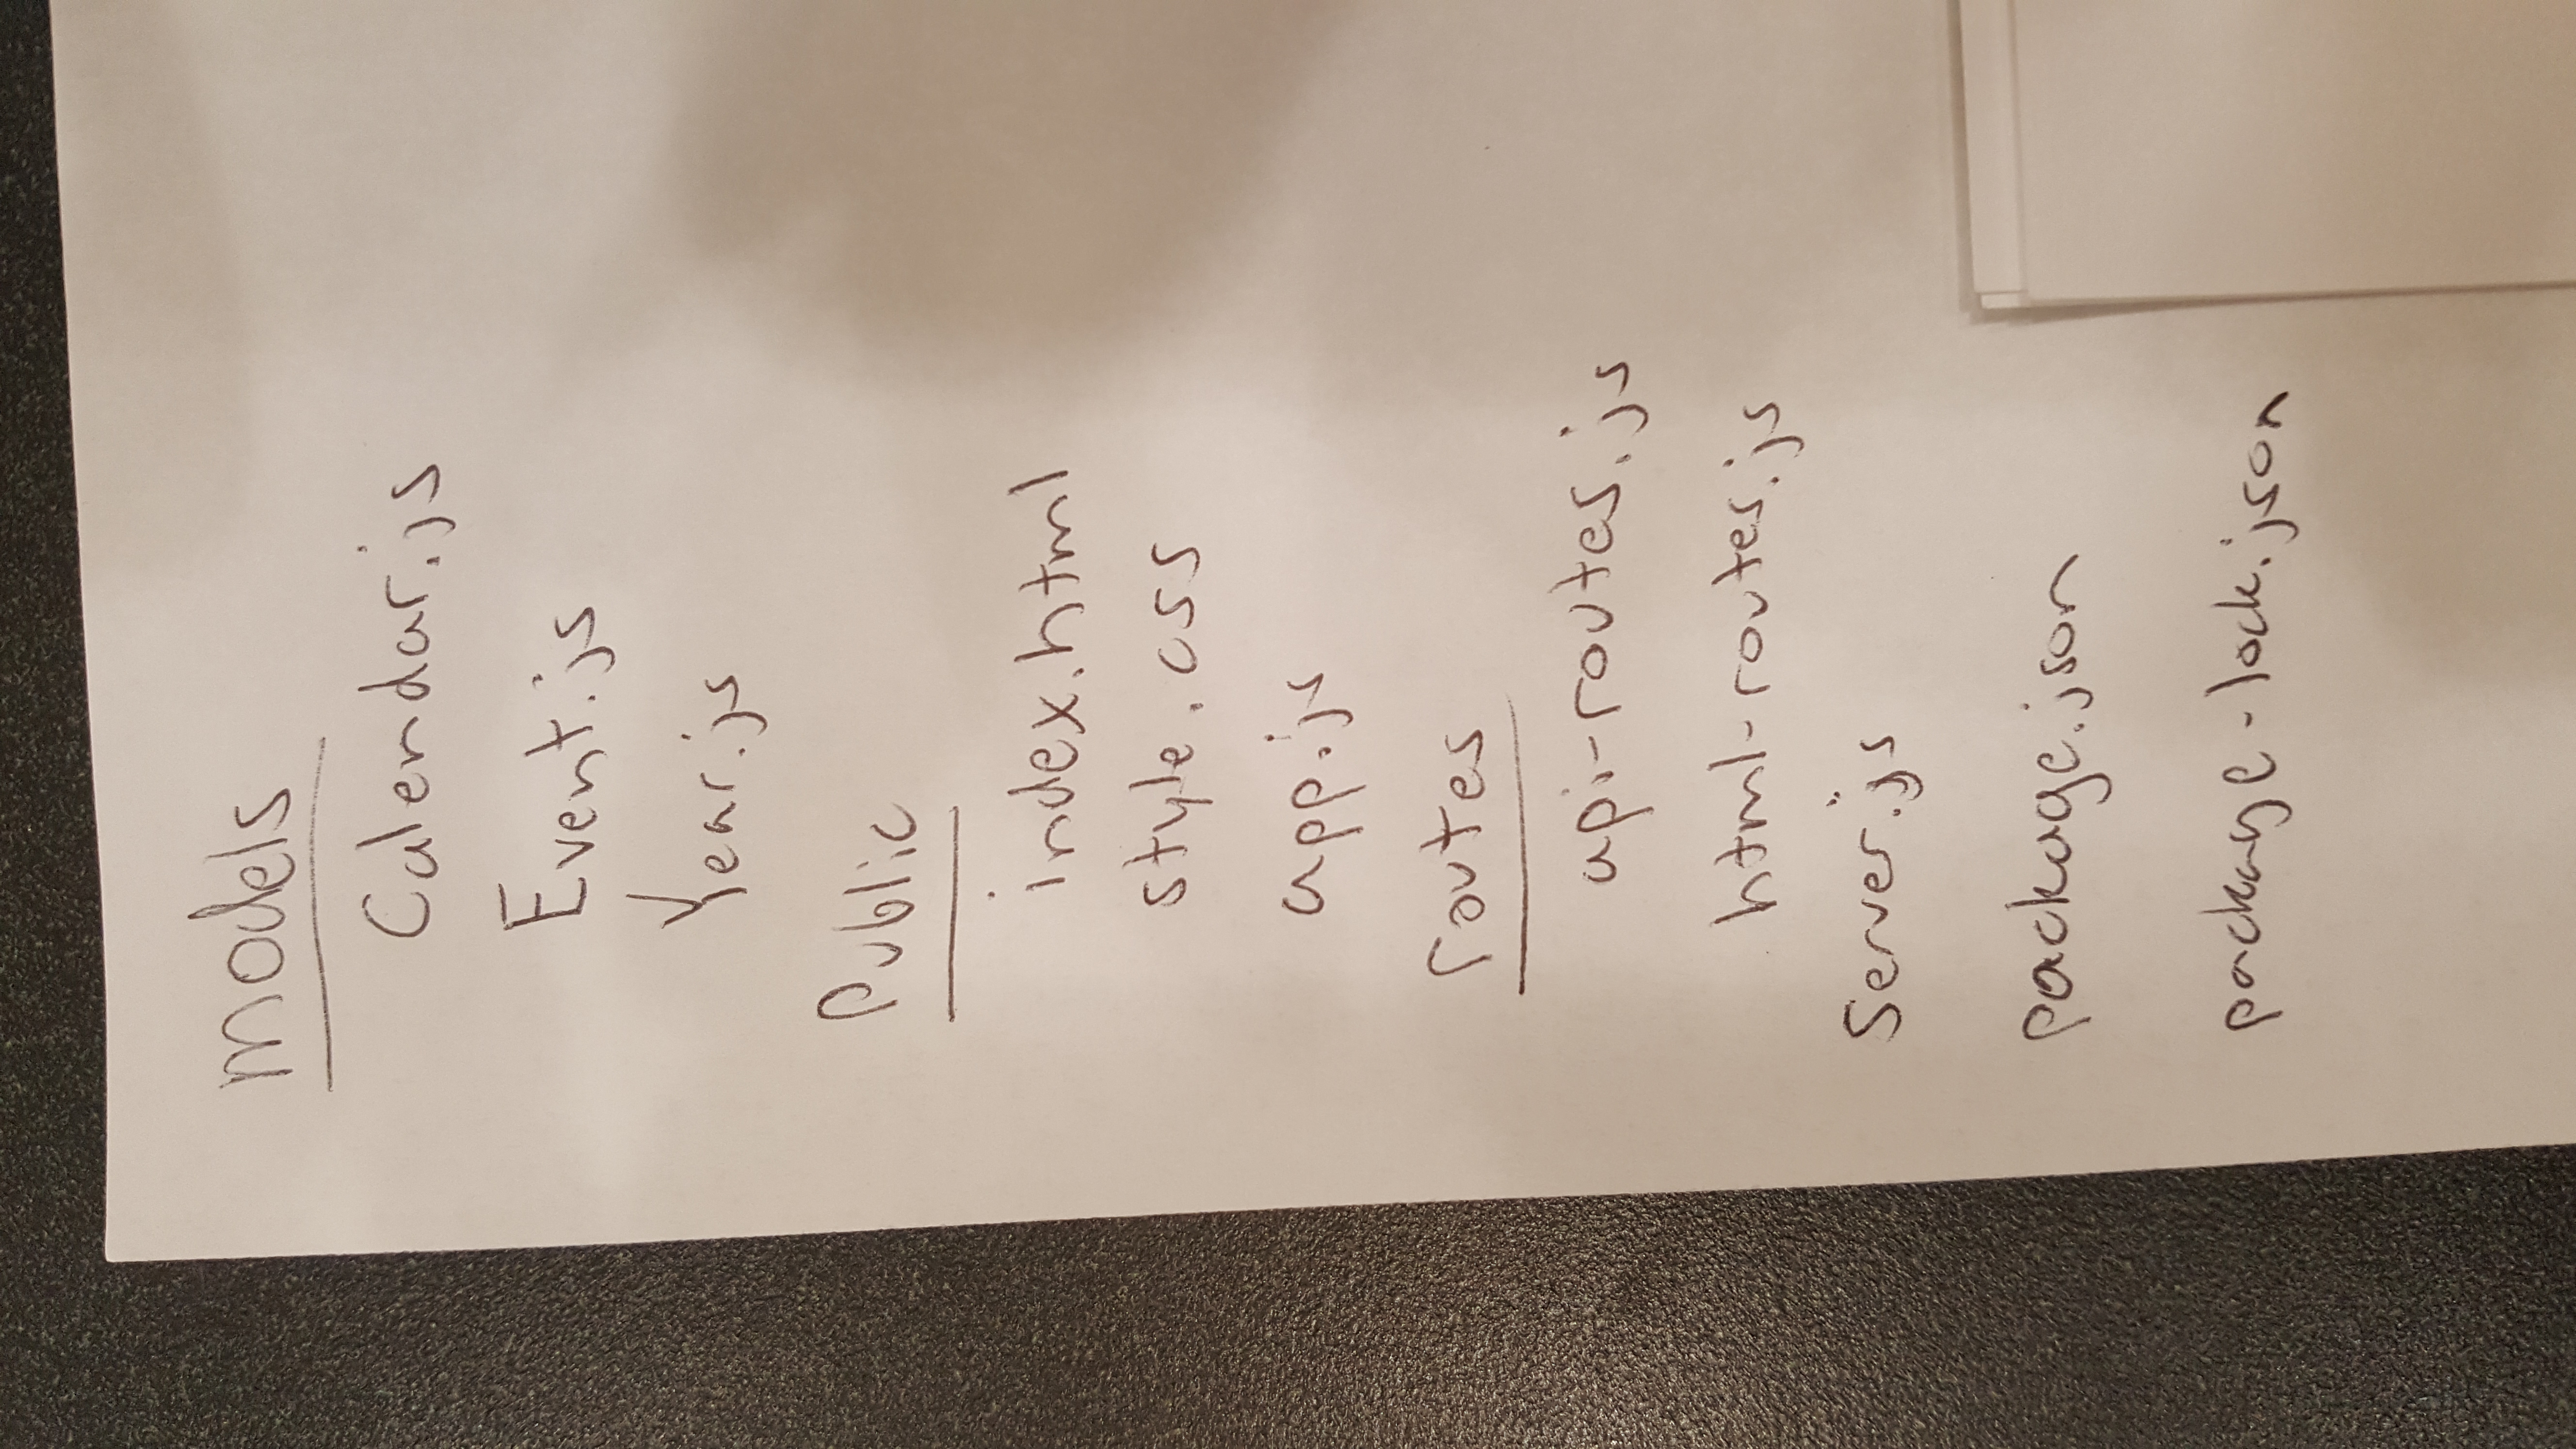 models
Calendar.js
Event.js
Year.js
Public
index.html
style.css
app.js
routes
api-routes.js
html-routes.js
Server.js
package.json
package-lock.json